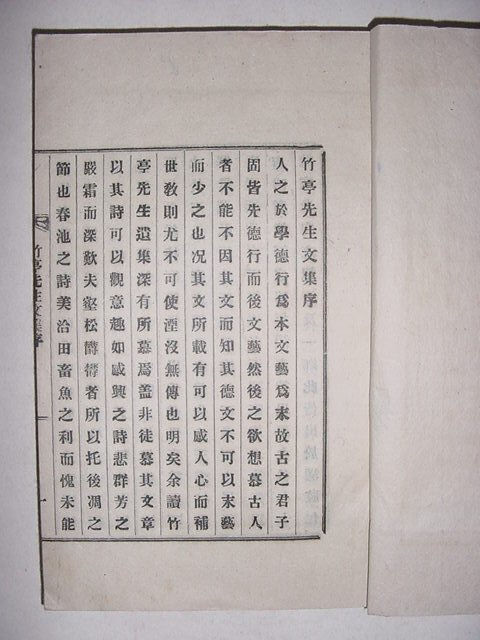 竹亭先生文集序
人之於學德行爲本文藝爲末故古之君子
固皆先德行而後文藝然後之欲想慕古人
者不能不因其文而知其德文不可以末藝
而少之也况其文所載有可以感人心而補
世敎則尤不可使湮沒無傳也明矣余讀竹
亭先生遺集深有所慕焉盖非徒慕其文章
以其詩可以觀意趣如感興之詩悲群芳之
嚴霜而深歎夫壑松欝欝者所以托後凋之
節也春池之詩美治田畜魚之利而愧未能
竹亭先生文集序
一